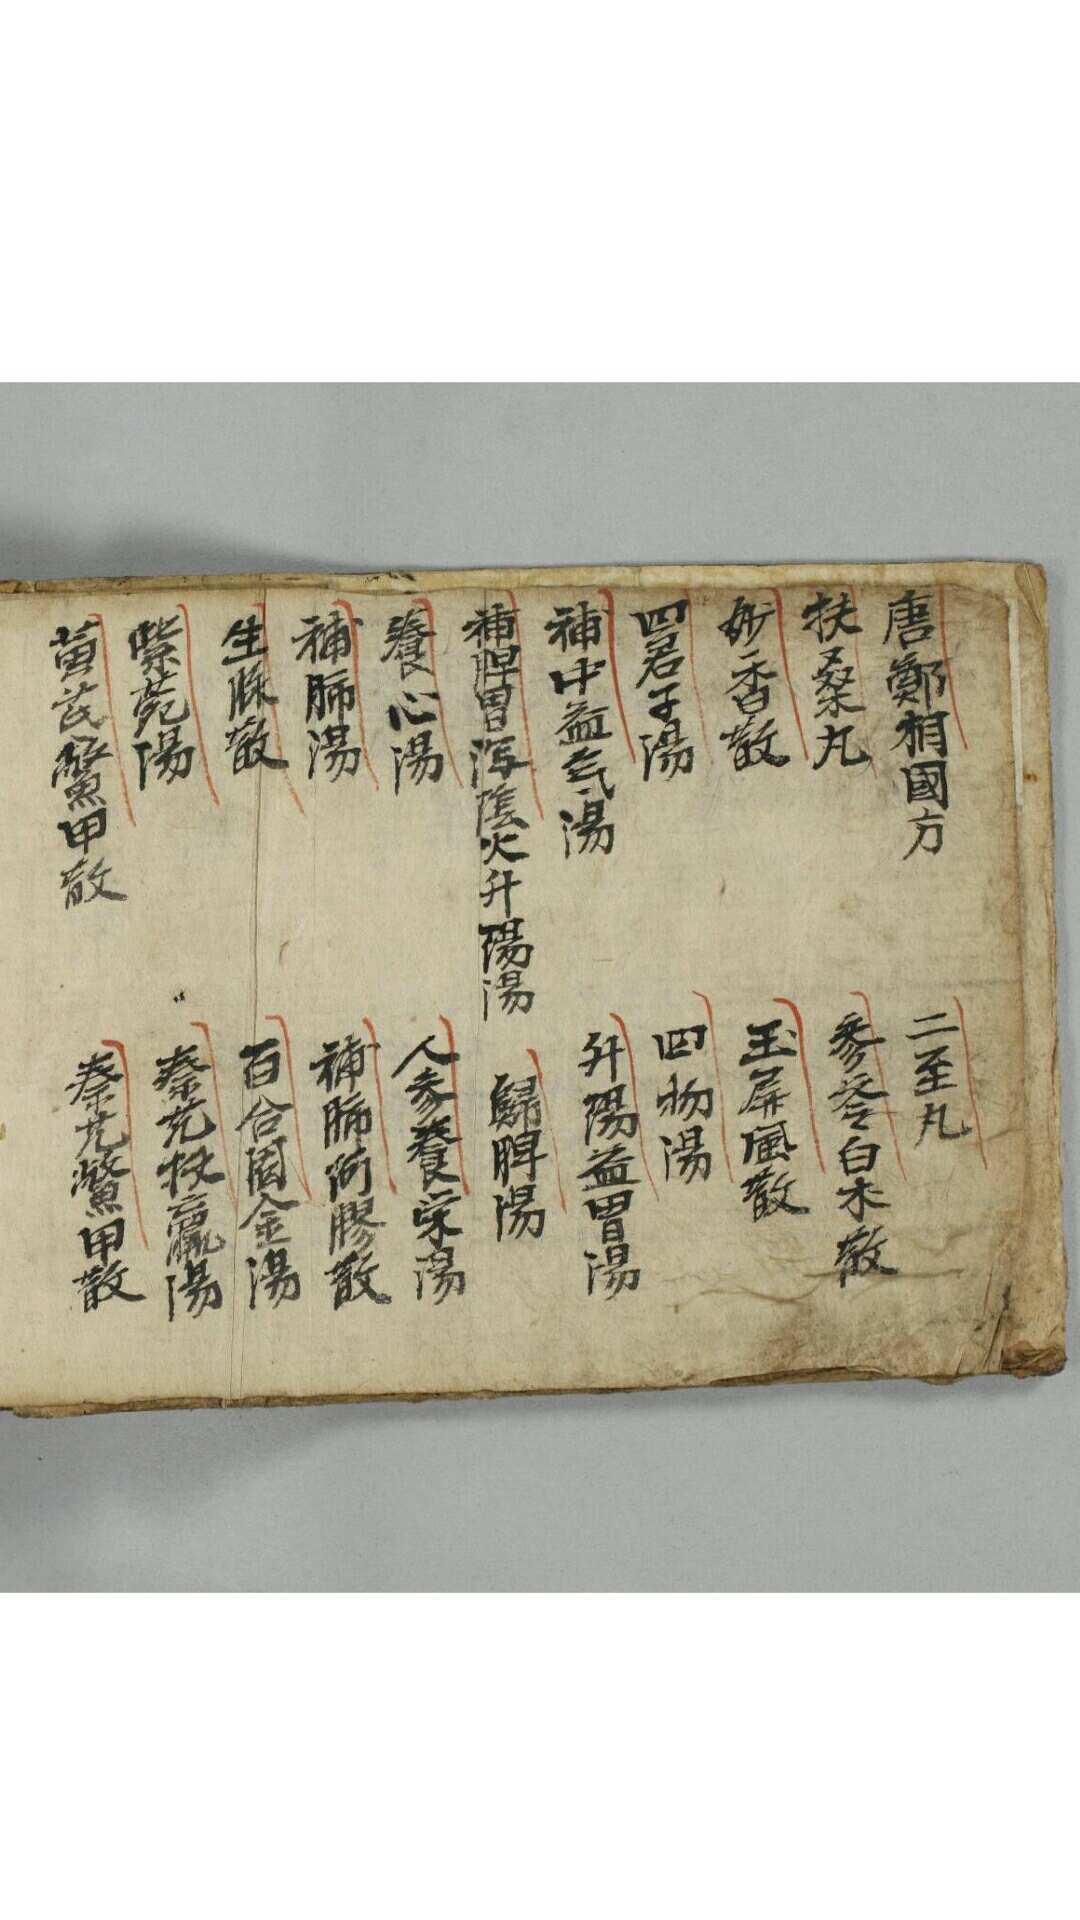 唐鄭相國方
二至丸
扶桑丸
參苓白朮散
妙香散
玉屏風散
四君子湯
四物湯
補中益氣湯
升陽益胃湯
補脾胃泻陰火升陽湯
歸脾湯
養心湯
人參養榮湯
補肺湯
補肺阿膠散
生脉散
百合固金湯
紫菀湯
秦艽扶羸湯
黄芪鱉甲散
秦艽鱉甲散